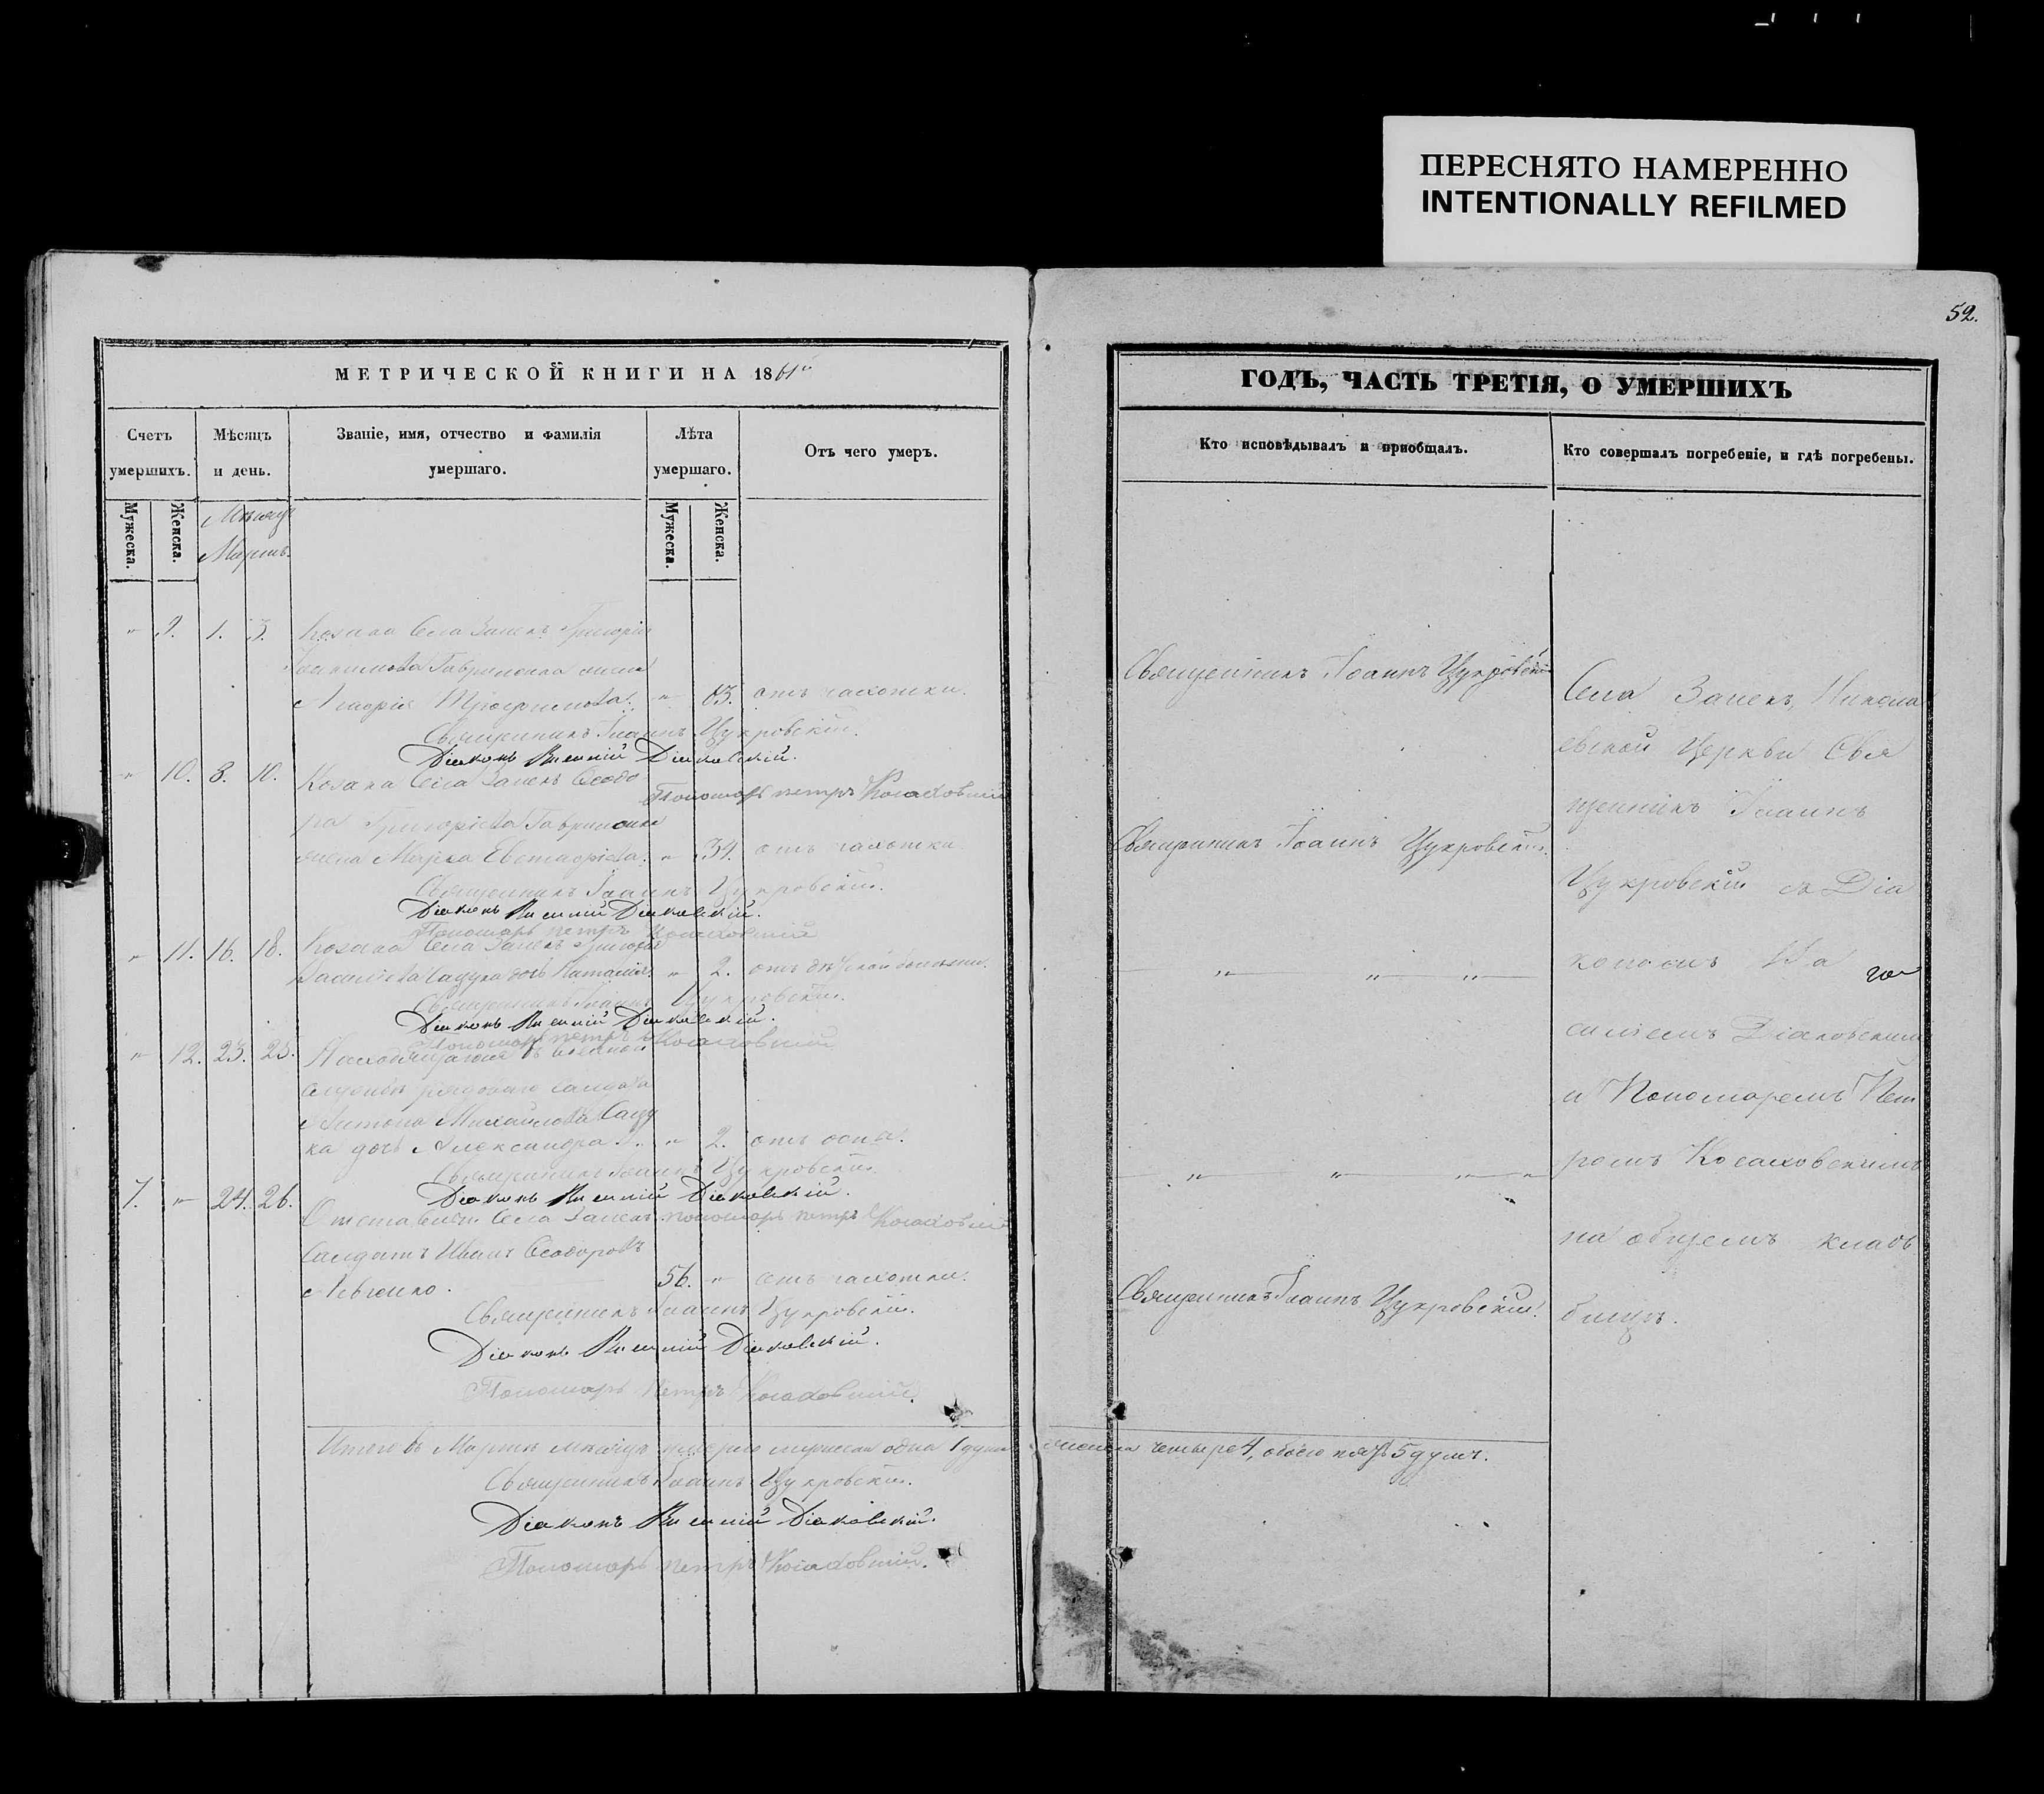 ПЕРЕСНЯТО НАМЕРЕННО
INTENTIONALLY REFILMED
52.
МЕТРИЧЕСКОЙ КНИГИ НА 1861й
Счетъ умершихъ.
Мѣсяцъ и день.
Званіе, имя, отчество и фамилія умершаго.
Лѣта умершаго.
Отъ чего умеръ.
Мужеска.
Женска.
Мѣсяцъ
Мартъ.
Мужеска.
Женска.
" 9. 1. 3. Козака Села Запекъ Григорія
Гавриленка жена
" 63. отъ чахотки.
Священникъ Іоаннъ Цукровскій.
Діаконъ Василій Діаковскій.
" 10. 8. 10. Козака Села Запекъ Ѳеодо
Пономарь петръ Косаковскій
ра Григоріева Гавриленка
жена Марѳа Евстаѳіева. " 34. отъ чахотки
Священникъ Іоаннъ Цукровскій.
Діаконъ Василій Діаковскій.
Пономарь петръ Косаковскій
" 11. 16. 18. Козака Села Запекъ Григорія
Василіева Сацука дочь Наталія. " 2. отъ дѣтской болѣзни.
Священникъ Іоаннъ Цукровскій.
Діаконъ Василій Діаковскій.
Пономарь петръ Косаковскій
" 12. 23. 25. Находящагося въ военной
службѣ рядового Салдата
Антона Михайлова Сацу
ка дочь Александра " 2. отъ оспы.
Священникъ Іоаннъ Цукровскій.
Діаконъ Василій Діаковскій.
7. " 24. 26. Отставной Села Запекъ пономарь петръ Косаковскій
Салдатъ Иванъ Ѳеодоровъ
Левченко. 56. " отъ чахотки.
Священникъ Іоаннъ Цукровскій.
Діаконъ Василій Діаковскій.
Пономарь петръ Косаковскій.
Итого въ Мартѣ мѣсяцѣ умерло мужеска одна 1 душа
Священникъ Іоаннъ Цукровскій.
Діаконъ Василій Діаковскій.
Пономарь петръ Косаковскій.
ГОДЪ, ЧАСТЬ ТРЕТІЯ, О УМЕРШИХЪ
Кто исповѣдывалъ и пріобщалъ.
Кто совершалъ погребеніе, и гдѣ погребены.
Священникъ Іоаннъ Цукровскій
Священникъ Іоаннъ Цукровскій.
" " "
" " "
Священникъ Іоаннъ Цукровскій.
женска четыре 4, обоего пола 5 душъ.
Села Запекъ, Никола
евской Церкви Свя
щенникъ Іоаннъ
Цукровскій съ Діа
кономъ Ва
силіемъ Діаковскимъ
и Пономаремъ Пет
ромъ Косаковскимъ
на общемъ клад
бищѣ.